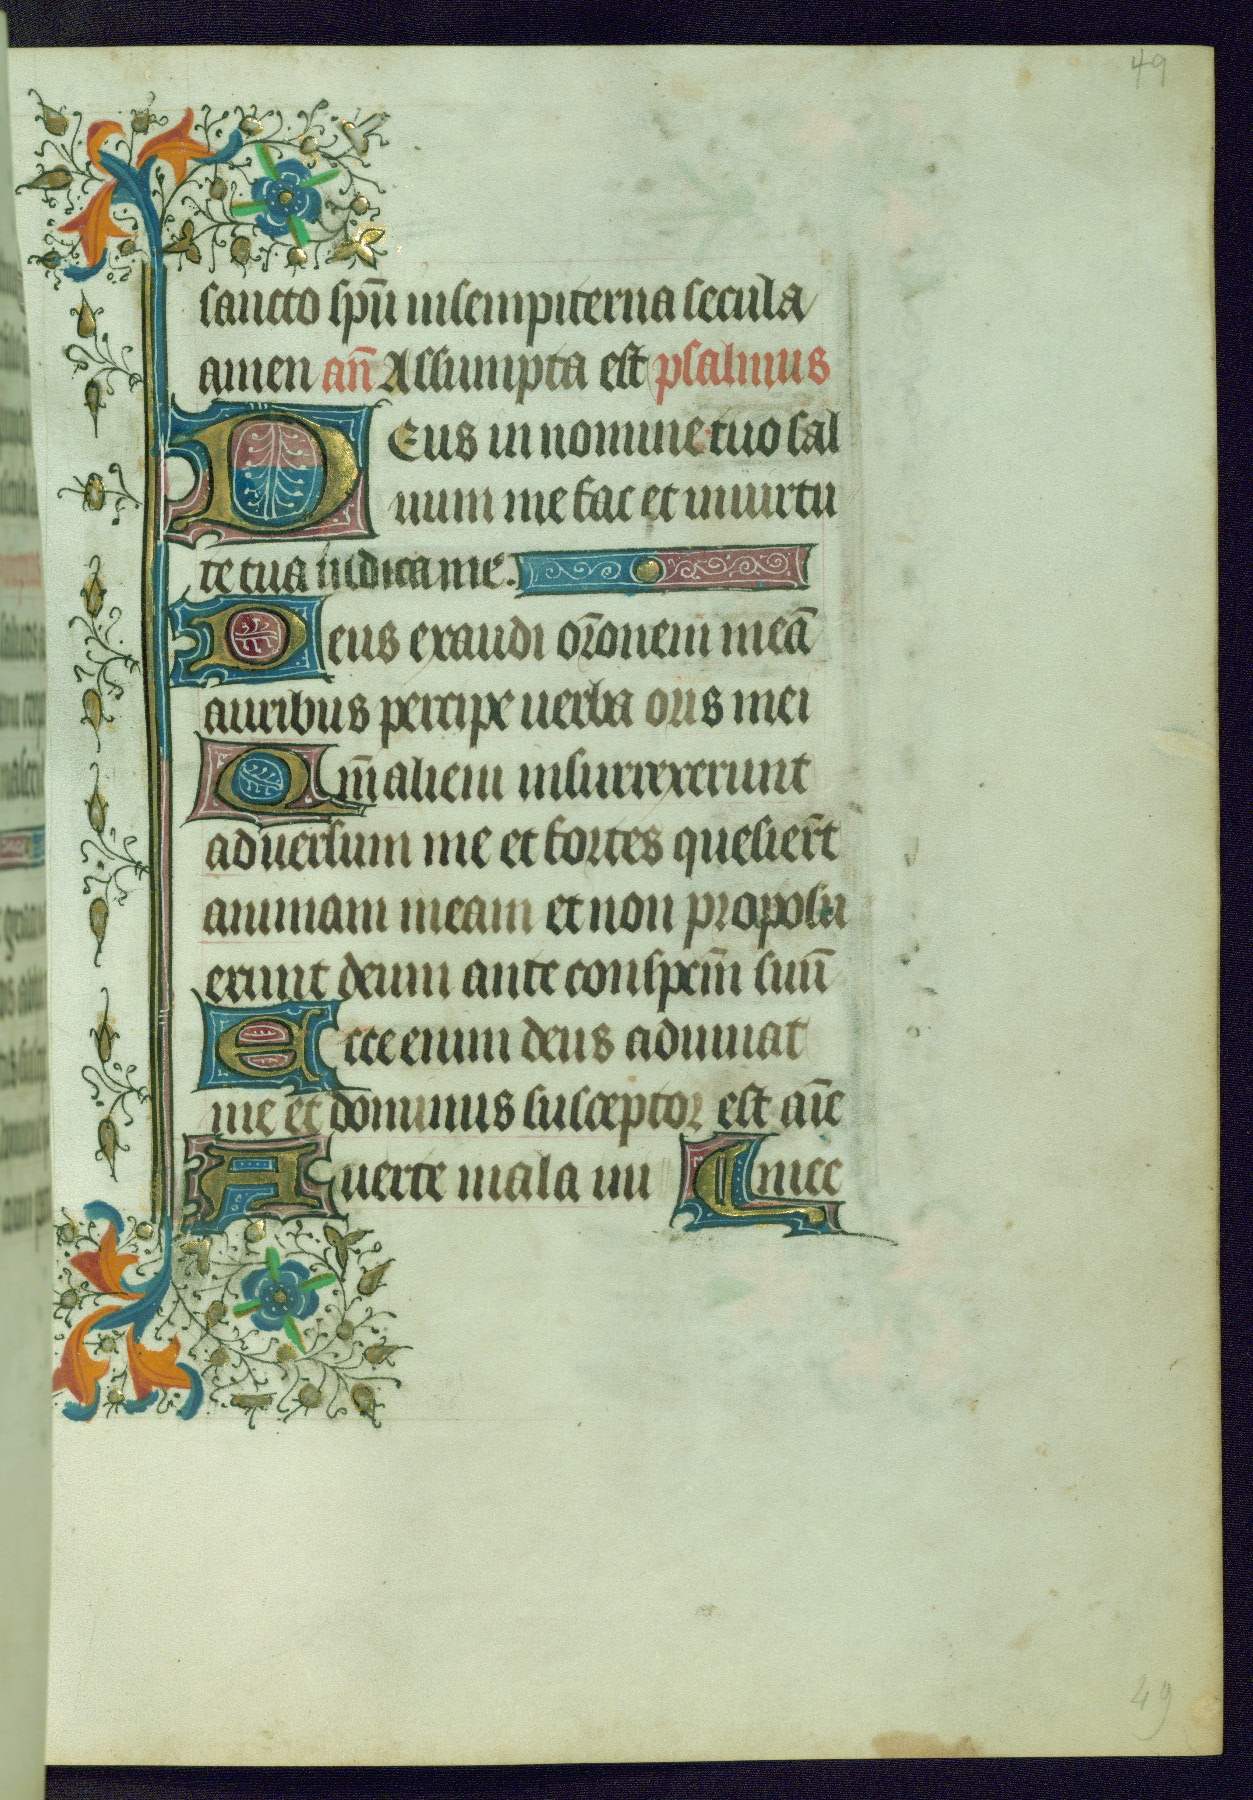 49
sancto spū insempiterna secula
amen añ Assumpta est psalmus
Deus in nomine tuo sal
uum me fac et inuirtu
te tua iudica me.
Deus exaudi or̄onem meā
auribus percipe uerba oris mei
Qm̄ alieni insurrexerunt
aduersum me et fortes quesier̄t
animam meam et non proposu
erunt deum ante conspem̄ suū
Ecce enim deus adiuuat
me et dominus susceptor est aīe
Auerte mala ini mee
49